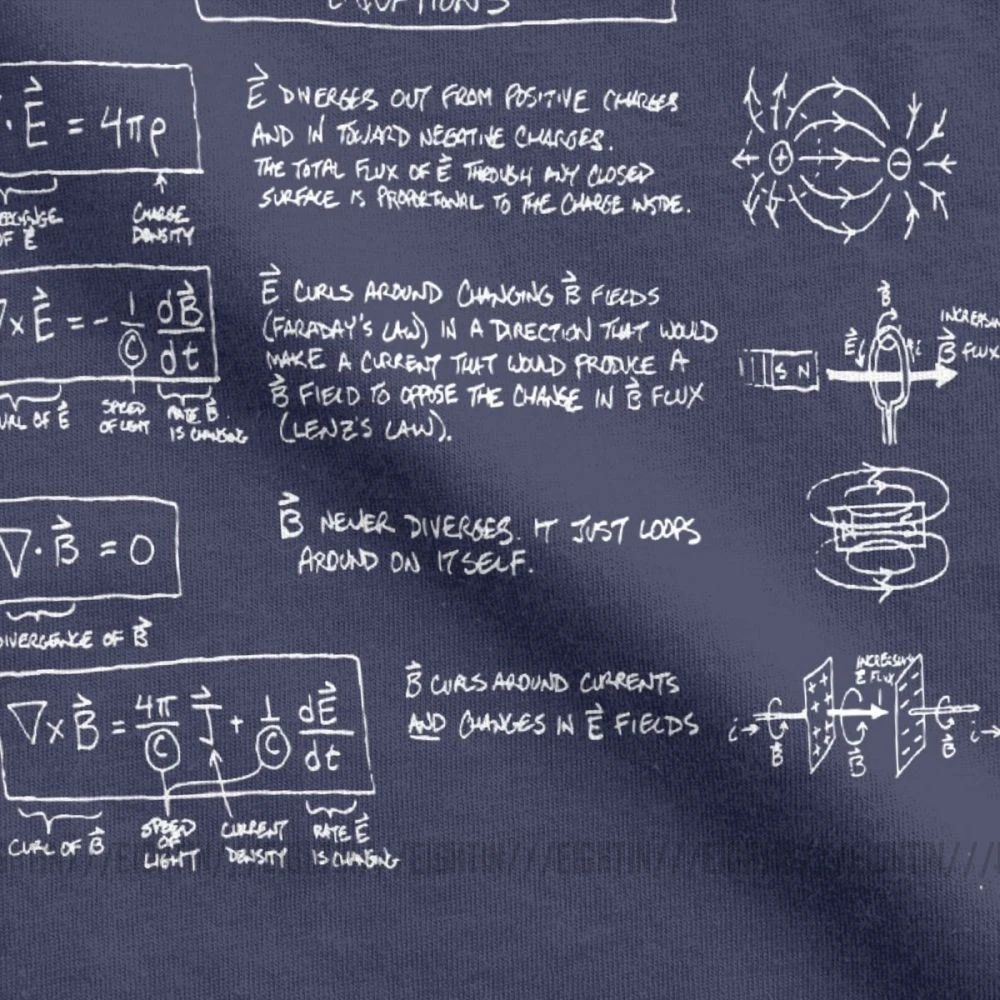 EQUATIONS
· E⃗ = 4πρ
OF E⃗
CHARGE
DENSITY
E⃗ DIVERGES OUT FROM POSITIVE CHARGES
AND IN TOWARD NEGATIVE CHARGES.
THE TOTAL FLUX OF E⃗ THROUGH ANY CLOSED
SURFACE IS PROPORTIONAL TO THE CHARGE INSIDE.
+
−
∇ x E⃗ = - 1/c dB⃗/dt
URL OF E⃗
SPEED
OF LIGHT
RATE B⃗
IS CHANGING
E⃗ CURLS AROUND CHANGING B⃗ FIELDS
(FARADAY'S LAW) IN A DIRECTION THAT WOULD
MAKE A CURRENT THAT WOULD PRODUCE A
B⃗ FIELD TO OPPOSE THE CHANGE IN B⃗ FLUX
(LENZ'S LAW).
S N
B⃗
E⃗
i
INCREASIN
B⃗ FLUX
∇ · B⃗ = 0
DIVERGENCE OF B⃗
B⃗ NEVER DIVERGES. IT JUST LOOPS
AROUND ON ITSELF.
∇ x B⃗ = 4π/c J⃗ + 1/c dE⃗/dt
CURL OF B⃗
SPEED
OF
LIGHT
CURRENT
DENSITY
RATE E⃗
IS CHANGING
B⃗ CURLS AROUND CURRENTS
AND CHANGES IN E⃗ FIELDS
INCREASING
E⃗ FLUX
i
B⃗
B⃗
B⃗
i